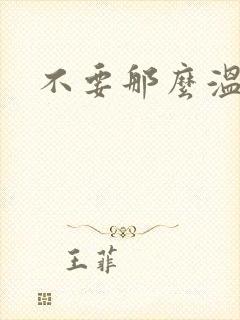 不要那麼溫
王菲